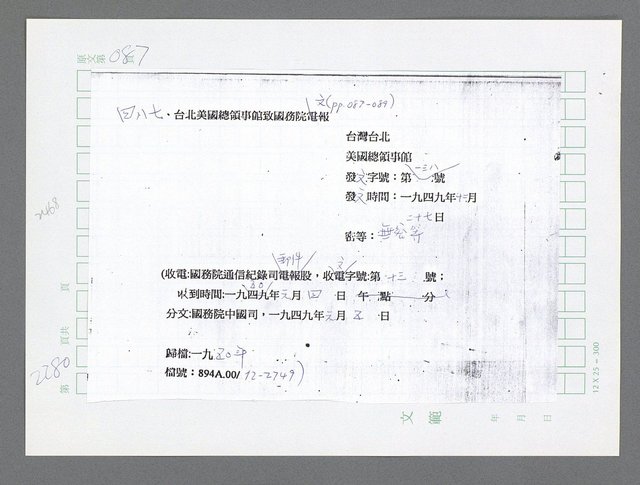 原文第087頁
四八七、台北美國總領事館致國務院電報
文(pp.087-089)
台灣台北
美國總領事館
發文字號：第一三八號
發文時間：一九四九年十二月
二十七日
密等：無密等
(收電:國務院通信紀錄司電報股，收電字號:第十三號；
郵件
文
收到時間:一九四九年元月四日 午 點 分
五〇
分文:國務院中國司，一九四九年元月五日
歸檔:一九五〇年
檔號：894A.00/12-2749)
頁
頁共
第
2280
文範
年 月 日
12 X 25 - 300